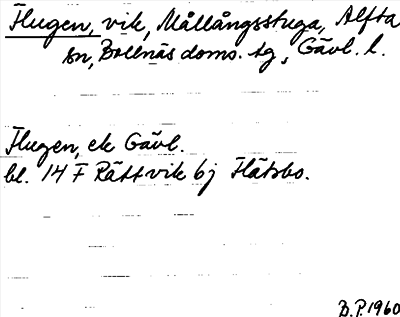 Flugen, vik, Mållångsstuga, Alfta
sn, Bollnäs doms. tg, Gävl. l.
Flugen, ek Gävl.
bl. 14 F Rättvik bj Flätsbo.
B.P. 1960